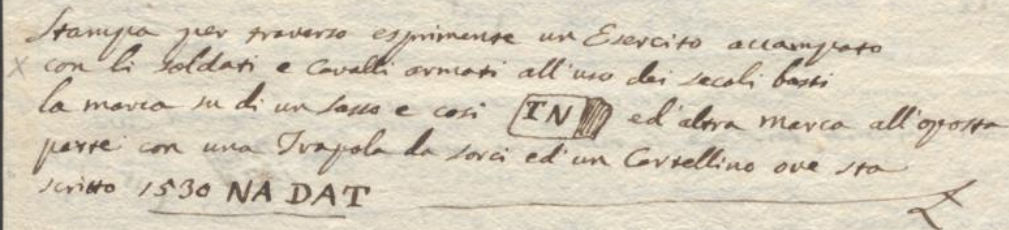 Stampa per traverso esprimente un Esercito accampato
con li soldati e Cavalli armati all'uso dei secoli bassi
la marca su di un sasso e così IN ed'altra marca all'oposta
parte con una Trapola da sorci ed'un Cartellino ove sta
scritto 1530 NA DAT